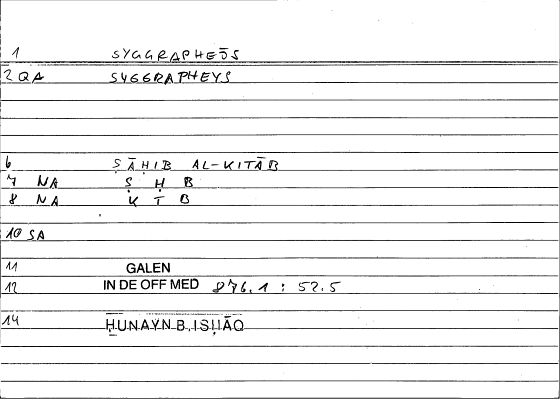 1 SYGGRAPHEŪS
2 QA SYGGRAPHEYS
6 ṢĀḤIB AL-KITĀB
7 NA Ṣ Ḥ B
8 NA K T B
10 SA
11 GALEN
12 IN DE OFF MED 876.1 : 52.5
14 ḤUNAYN B. ISḤĀQ